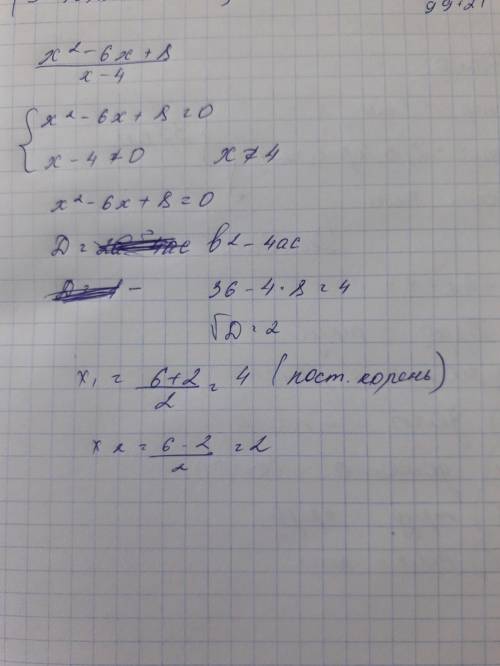 99+21
x² - 6x + 8
x - 4
x² - 6x + 8 = 0
x - 4 ≠ 0 x ≠ 4
x² - 6x + 8 = 0
D = b² - 4ac
- 36 - 4 · 8 = 4
√D = 2
x₁ = 6+2 / 2 = 4 (пост. корень)
x₂ = 6-2 / 2 = 2